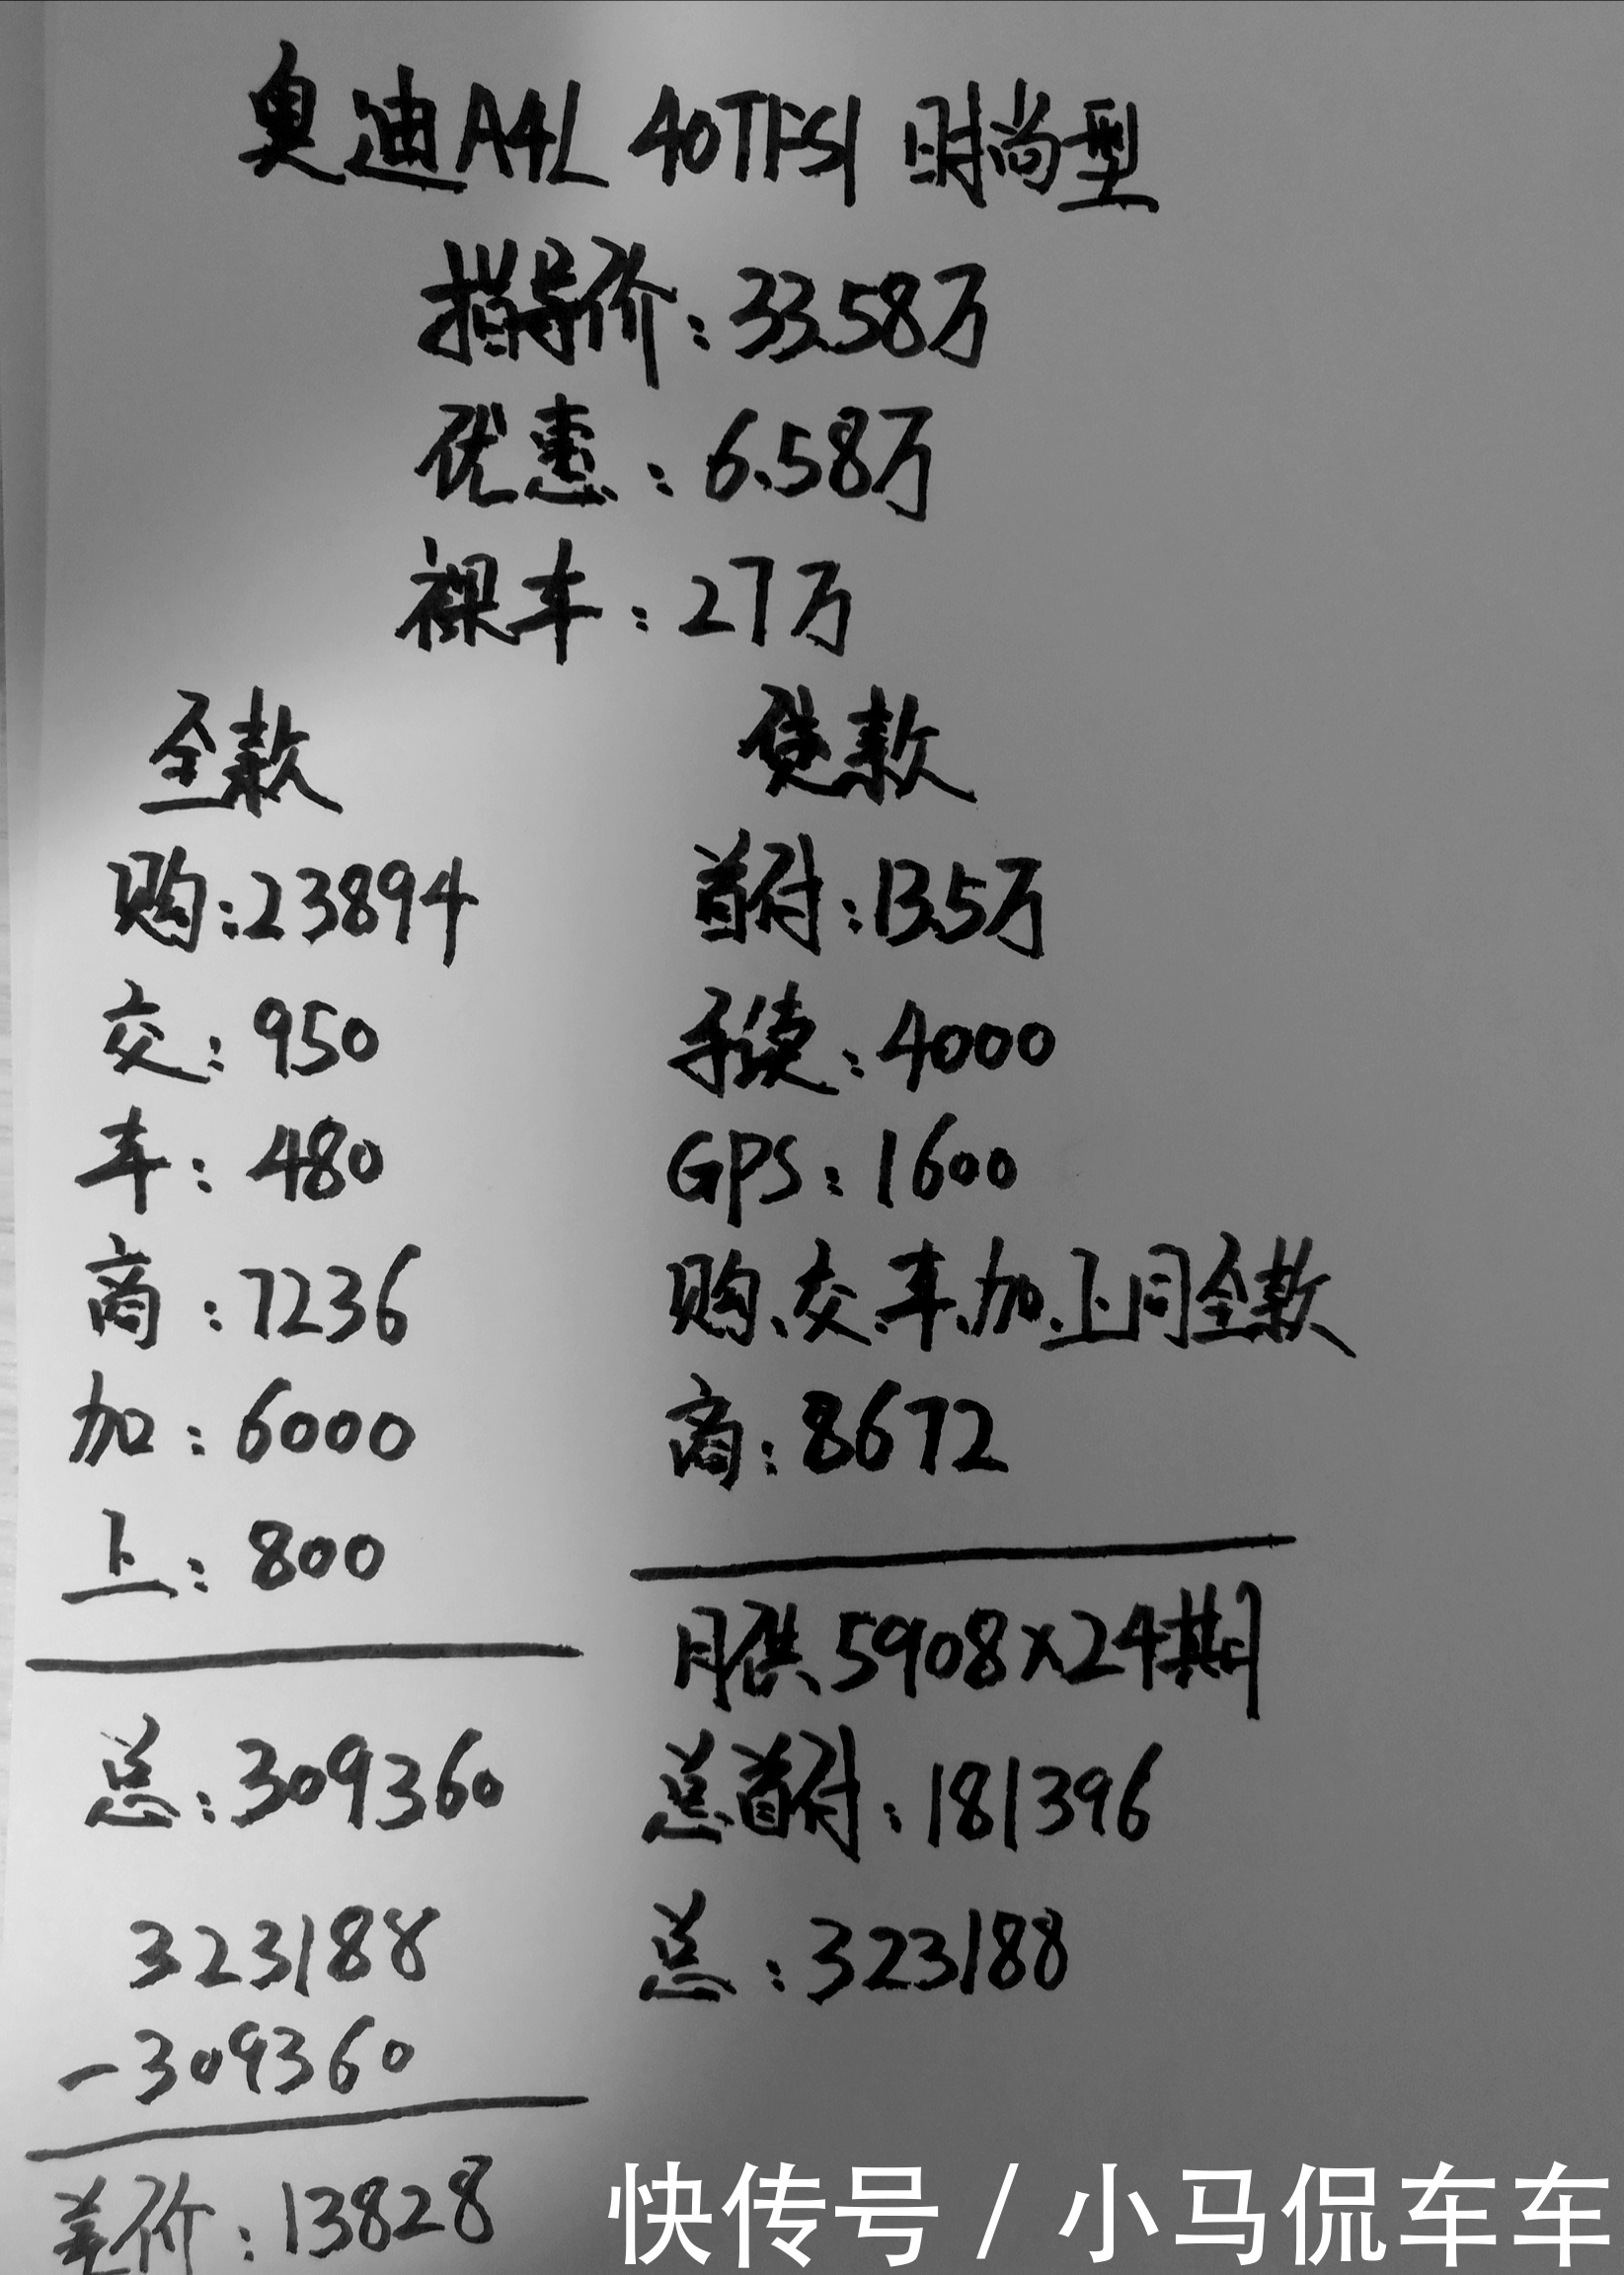 奥迪A4L 40TFSI 时尚型
指导价:33.58万
优惠:6.58万
裸车:27万
全款
购:23894
交:950
车:480
商:7236
加:6000
上:800
总:309360
323188
-309360
差价:13828
贷款
首付:13.5万
手续:4000
GPS:1600
购、交、车、加、上同全款
商:8672
月供5908×24期
总首付:181396
总:323188
快传号/小马侃车车